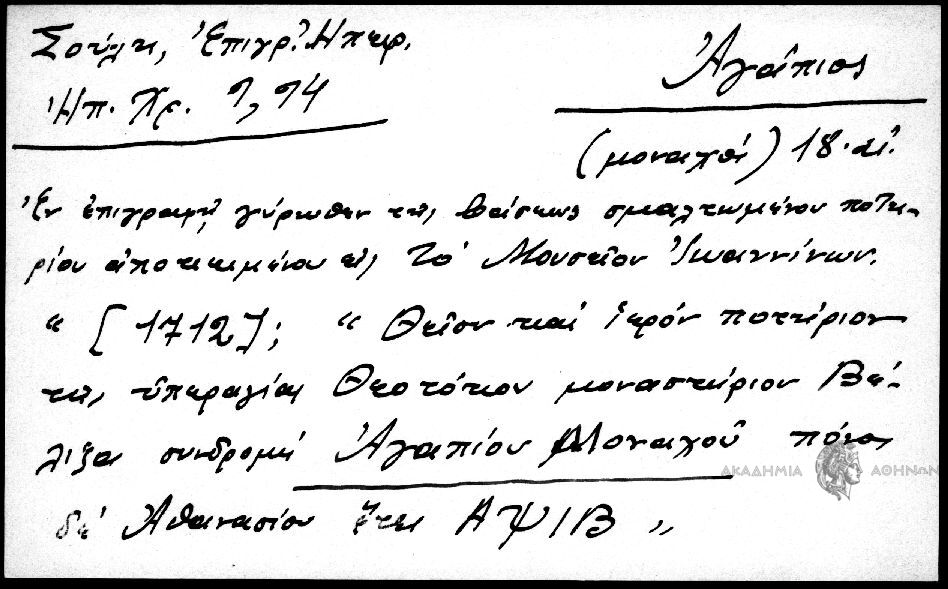 Σούλη, Ἐπιγρ. Ἠπειρ.
Ἠπ. Χρ. 9, 94
Ἀγάπιος
(μοναχός) 18. αἰ.
Ἐν ἐπιγραφῇ γύρωθεν τῆς βάσεως σμαλτωμένου ποτη-
ρίου ἀποκειμένου εἰς τὸ Μουσεῖον Ἰωαννίνων.
“ [1712]; “ Θεῖον καί ἱερόν ποτήριον
τῆς ὑπεραγίας Θεοτόκου μοναστήριον Βε-
λιξα συνδρομή Ἀγαπίου Μοναχοῦ πόνος
δέ Ἀθανασίου ἔτει ΑΨΙΒ „
ΑΚΑΔΗΜΙΑ ΑΘΗΝΩΝ